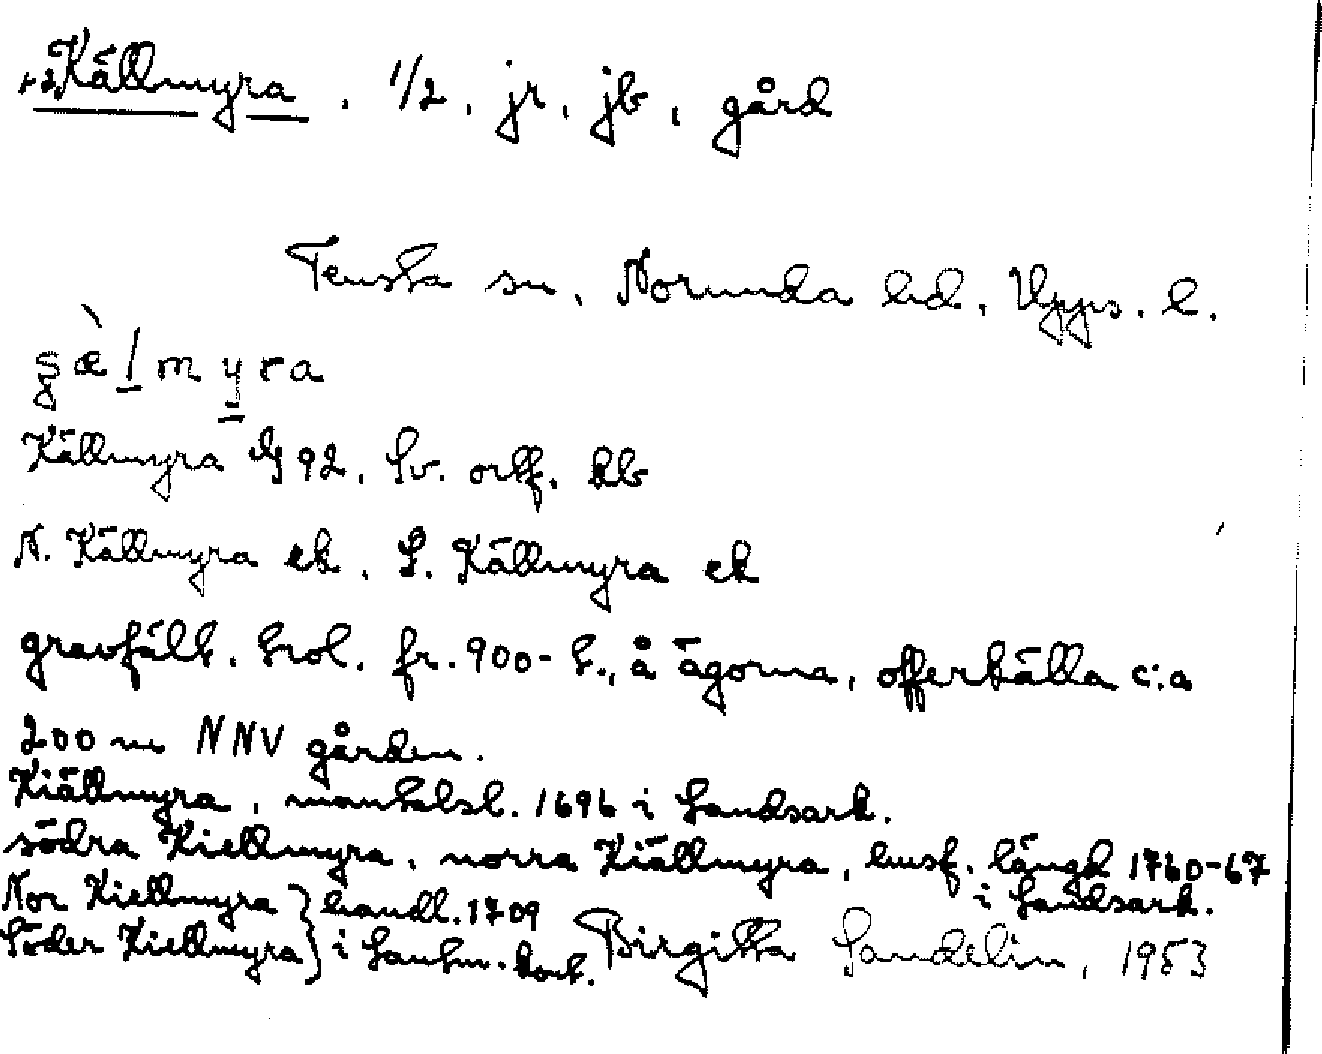 Källmyra, 1/2, jr, jb, gård
Tensta sn, Norunda hd, Upps. l.
Källmyra 92, Sv. ortf. kb
N. Källmyra ek, S. Källmyra ek
gravfält, trol. fr. 900-t., å ägorna, offerkälla c:a
200 m NNV gården.
Kiällmyra, mantalsl. 1696 i Landsark.
södra Kiellmyra, norra Kiällmyra, husf. längd 1760-67
i Landsark.
Nor Kiellmyra } handl. 1709
Söder Kiellmyra } i Lantm. kont.
Birgitta Sandelin, 1953